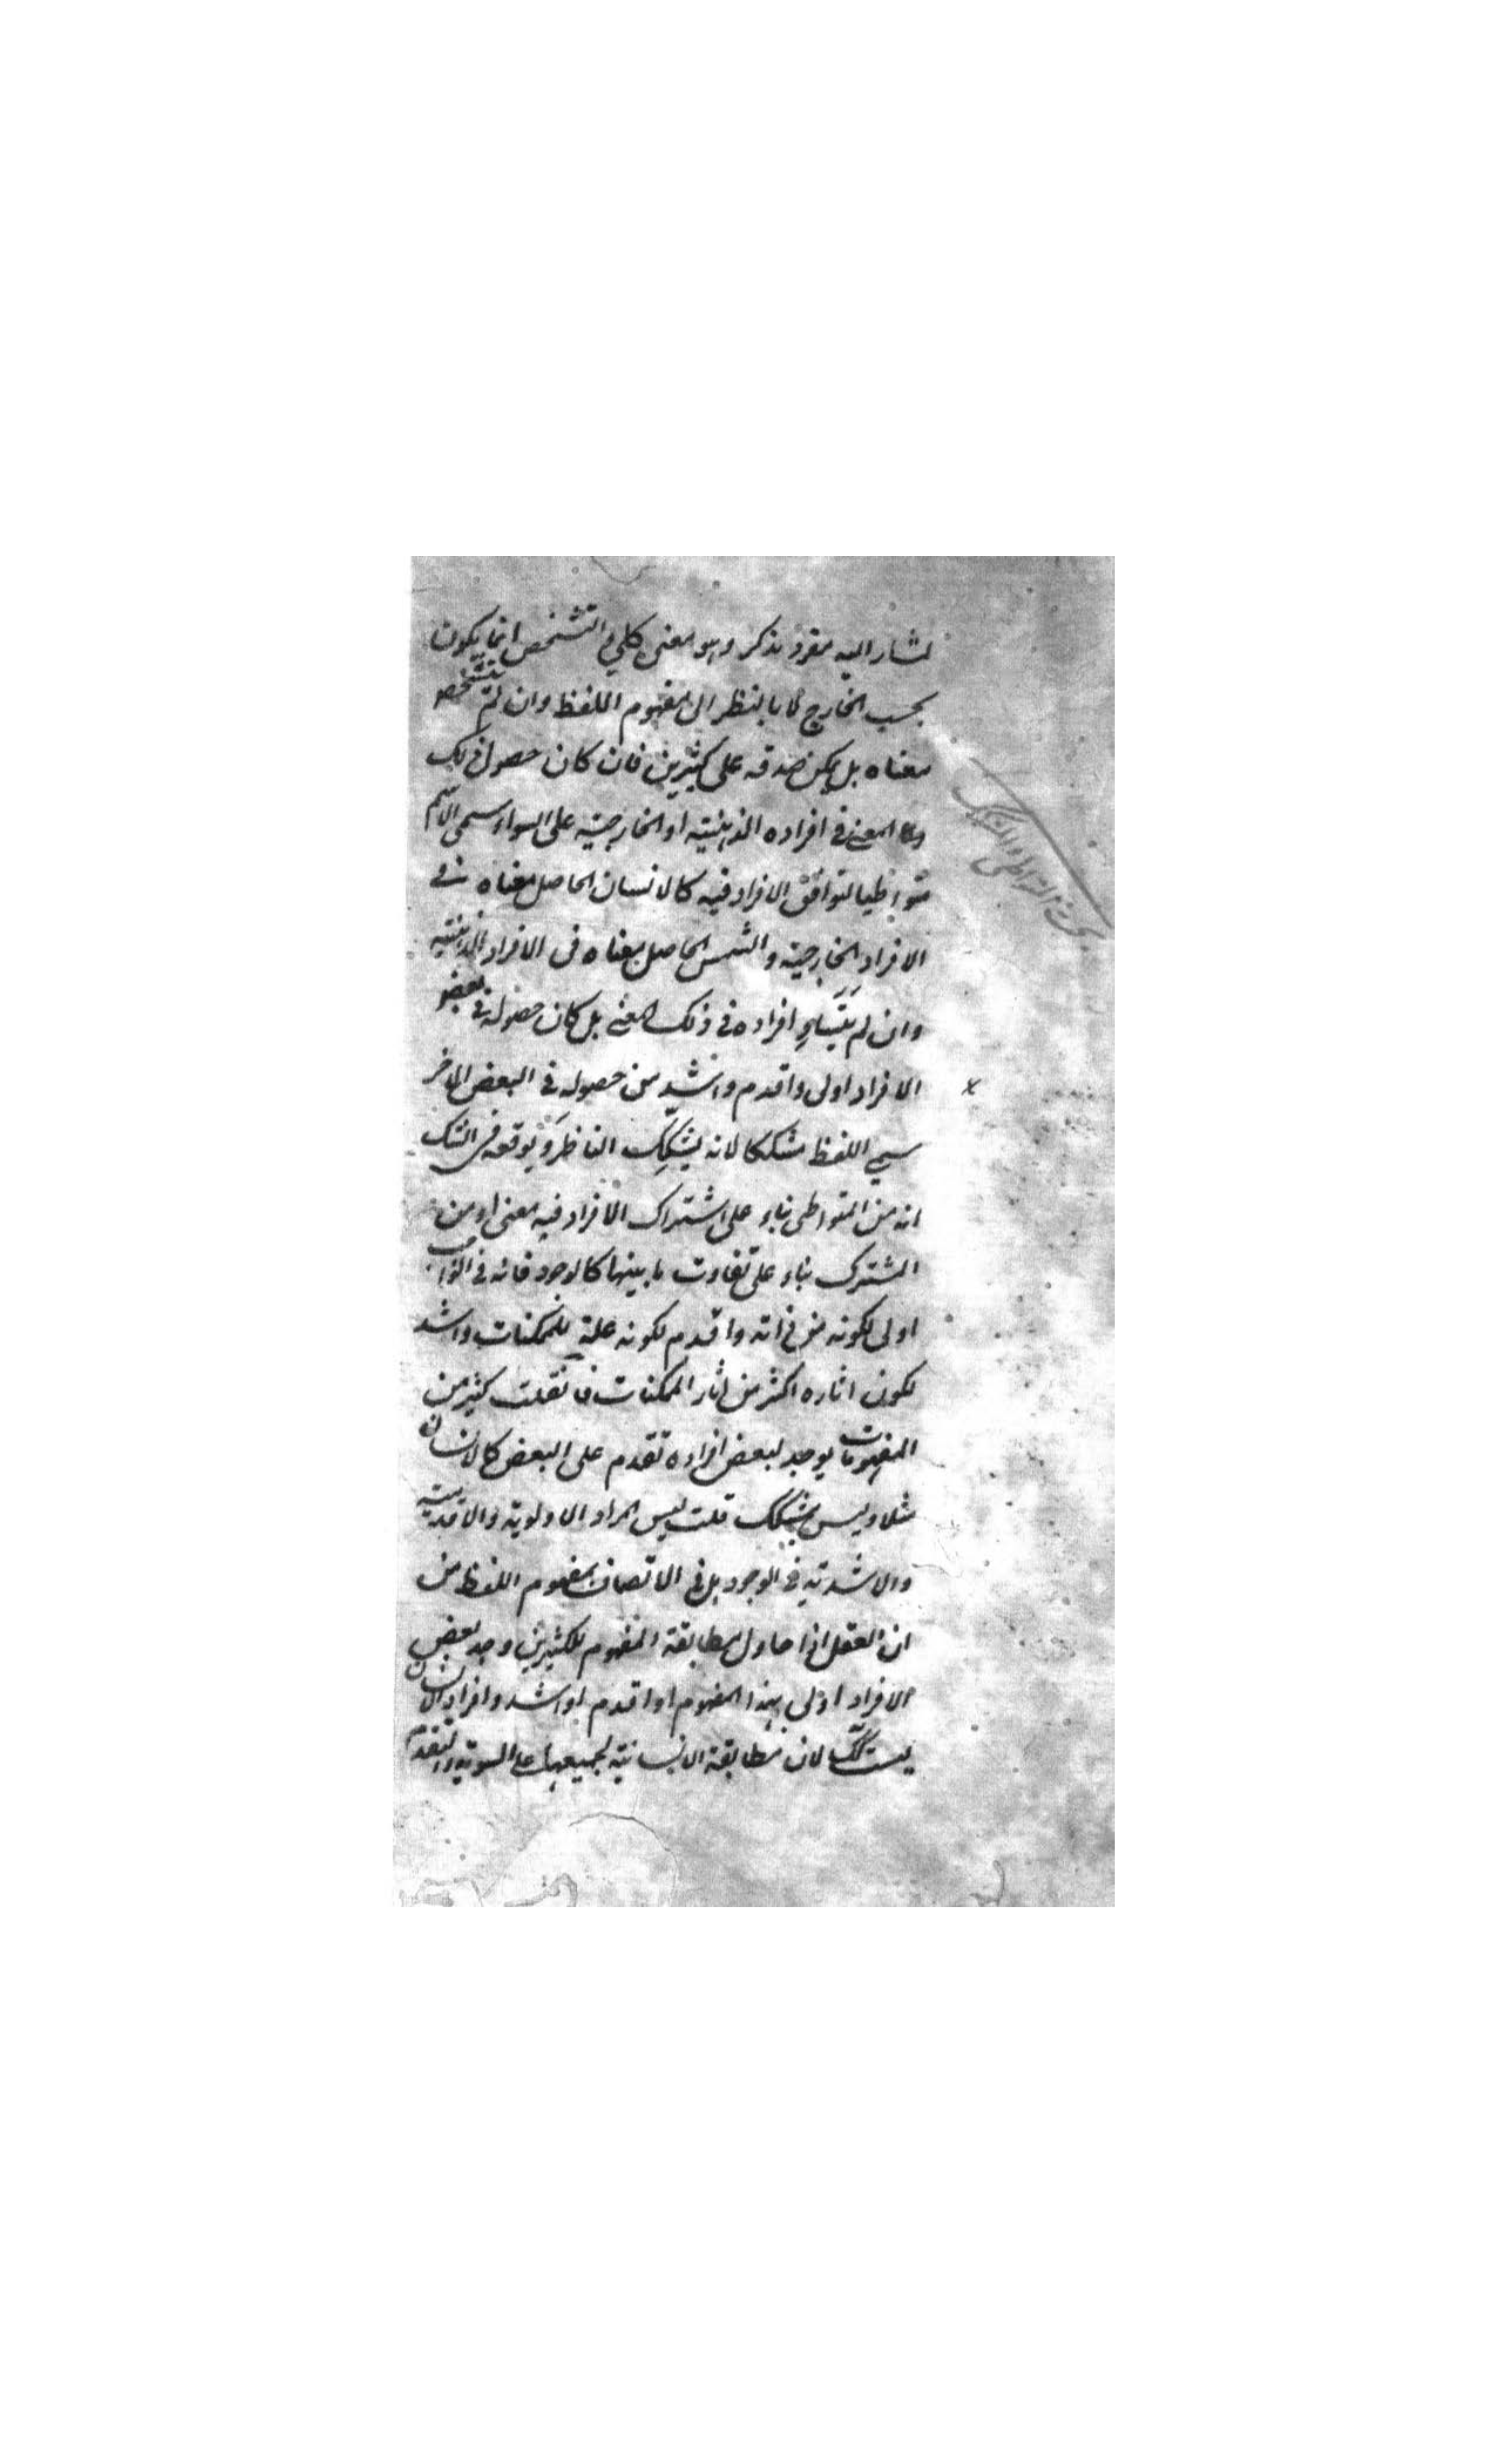 لمشار اليه مفرد مذكر وهو معنى كلي والتشخص انما يكون
بحسب الخارج لا بالنظر الى مفهوم اللفظ وان لم يتشخص
معناه بل يمكن صدقه على كثيرين فان كان حصول ذلك
المعنى في افراده الذهنية او الخارجية على السواء سمى الاسم
متواطيا لتوافق الافراد فيه كالانسان الحاصل معناه في
الافراد الخارجية والشمس الحاصل معناه في الافراد الذهنية
وان لم يتساو افراده في ذلك المعنى بل كان حصوله في بعض
الافراد اولى واقدم واشد من حصوله في البعض الاخر
سمي اللفظ مشككا لانه يشكك الناظر ويوقعه في الشك
انه من المتواطى بناء على اشتراك الافراد فيه معنى او من
المشترك بناء على تفاوت ما بينها كالوجود فانه في الواجب
اولى لكونه من ذاته واقدم لكونه علة للممكنات واشد
لكون اثاره اكثر من اثار الممكنات فان قلت كثير من
المفهومات يوجد لبعض افراده تقدم على البعض كالانسان
مثلا وليس بمشكك قلت ليس المراد الاولوية والاقدمية
والاشدية في الوجود بل في الاتصاف بمفهوم اللفظ من
ان العقل اذا حاول مطابقة المفهوم للكثيرين وجد بعض
الافراد اولى بهذا المفهوم او اقدم او اشد وافراد الانسان
ليست كك لان مطابقة الانسانية لجميعها على السوية والتقدم
بحث المتواطى والمشكك